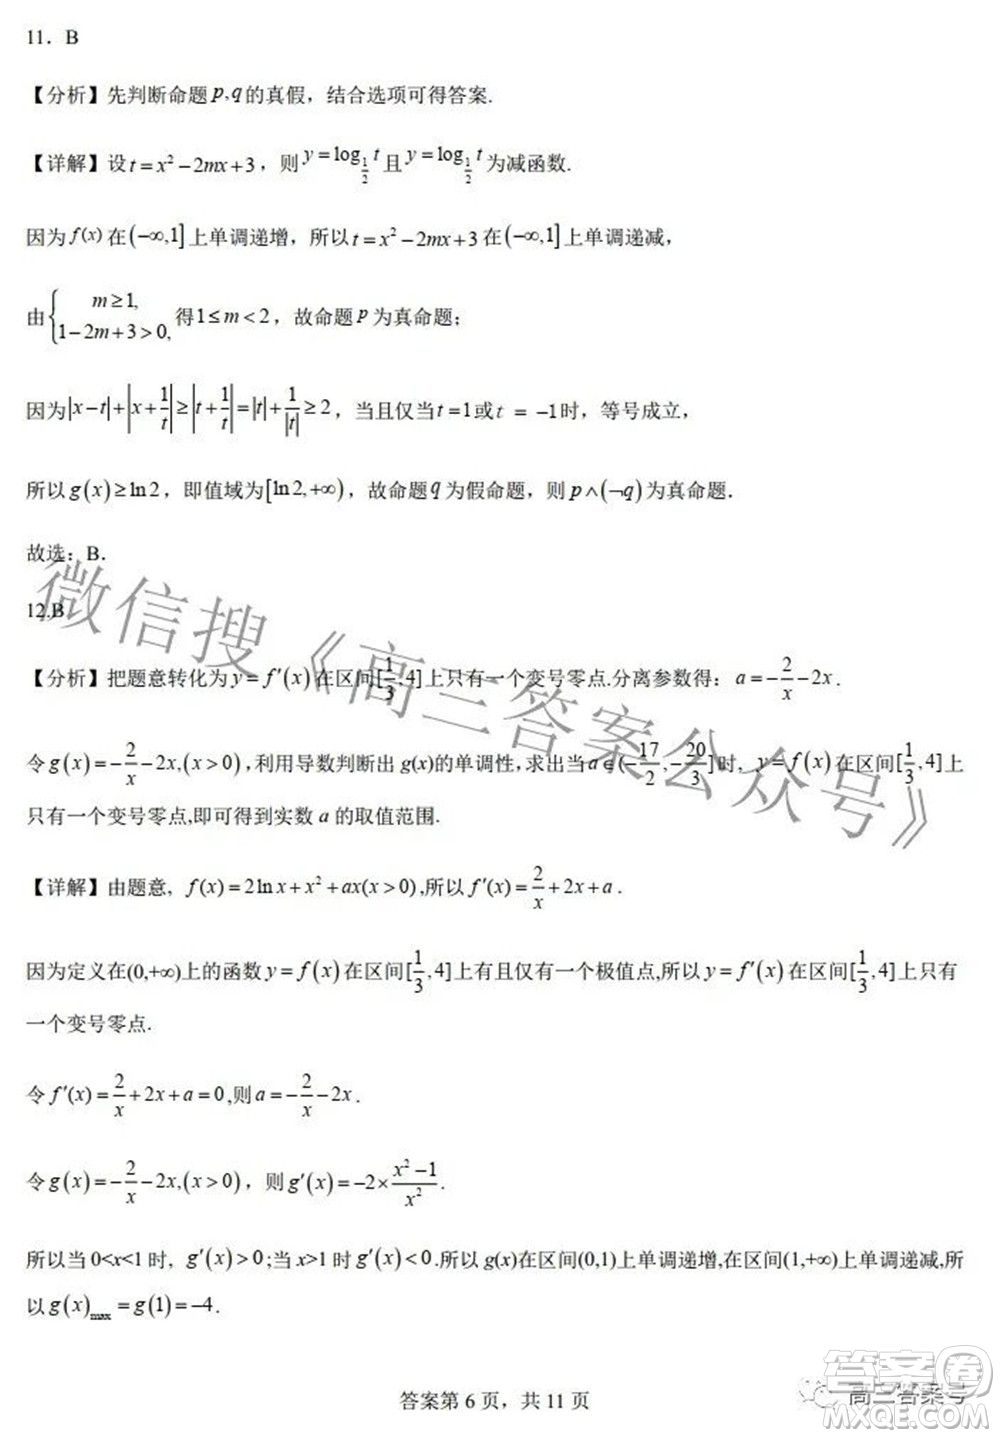 11．B
【分析】先判断命题 p,q 的真假，结合选项可得答案.
【详解】设 t=x²-2mx+3，则 y=log_{1/2} t 且 y=log_{1/2} t 为减函数.
因为 f(x) 在 (-∞,1] 上单调递增，所以 t=x²-2mx+3 在 (-∞,1] 上单调递减，
由 { m≥1, 1-2m+3>0, 得 1≤m<2，故命题 p 为真命题；
因为 |x-t|+|x+1/t|≥|t+1/t|=|t|+1/|t|≥2，当且仅当 t=1 或 t = -1 时，等号成立，
所以 g(x)≥ln2，即值域为 [ln2,+∞)，故命题 q 为假命题，则 p∧(¬q) 为真命题．
故选：B．
12.B
【分析】把题意转化为 y=f′(x) 在区间[1/3,4]上只有一个变号零点.分离参数得：a=-2/x-2x．
令 g(x)=-2/x-2x,(x>0),利用导数判断出 g(x)的单调性，求出当 a∈(-17/2,-20/3]时，y=f(x)在区间[1/3,4]上
只有一个变号零点,即可得到实数 a 的取值范围.
【详解】由题意，f(x)=2lnx+x²+ax(x>0),所以 f′(x)=2/x+2x+a．
因为定义在(0,+∞)上的函数 y=f(x) 在区间[1/3,4]上有且仅有一个极值点,所以 y=f′(x) 在区间[1/3,4]上只有
一个变号零点.
令 f′(x)=2/x+2x+a=0,则 a=-2/x-2x．
令 g(x)=-2/x-2x,(x>0)，则 g′(x)=-2×(x²-1)/x²．
所以当 0<x<1 时，g′(x)>0;当 x>1 时 g′(x)<0.所以 g(x)在区间(0,1)上单调递增,在区间(1,+∞)上单调递减,所
以 g(x)max=g(1)=-4．
答案第 6 页，共 11 页
微信搜《高三答案公众号》
高三答案号
答案圈
MXQE.COM